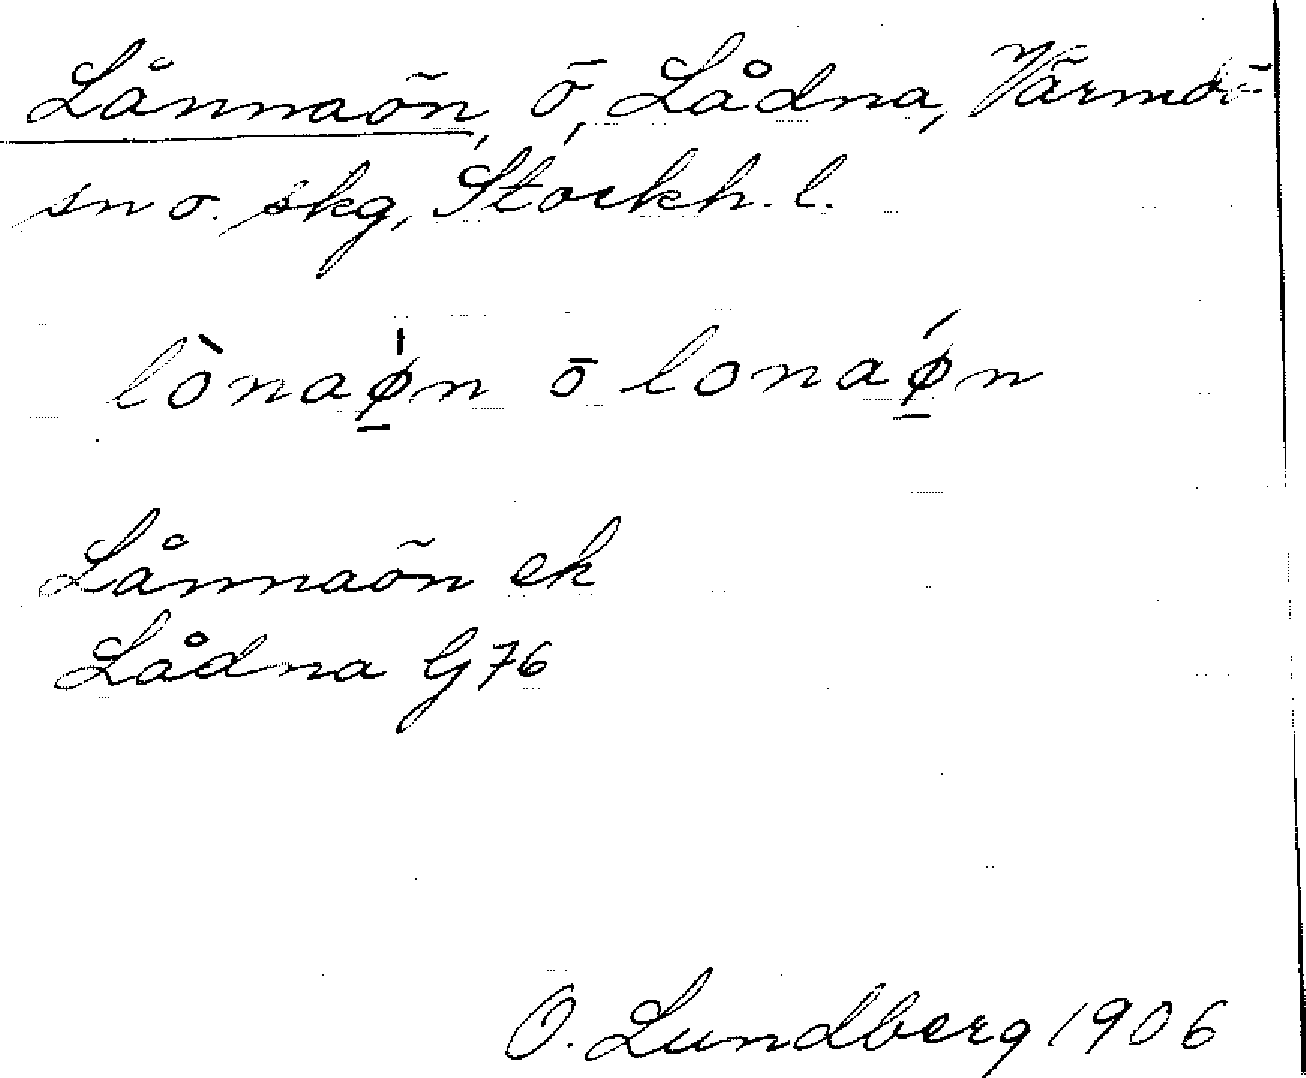 Lånnaön, ö, Lådna, Värmdö
sn o. skg, Stockh. l.
lònaø̍n o lonaǿn
Lånnaön ek
Lådna G76
O. Lundberg 1906